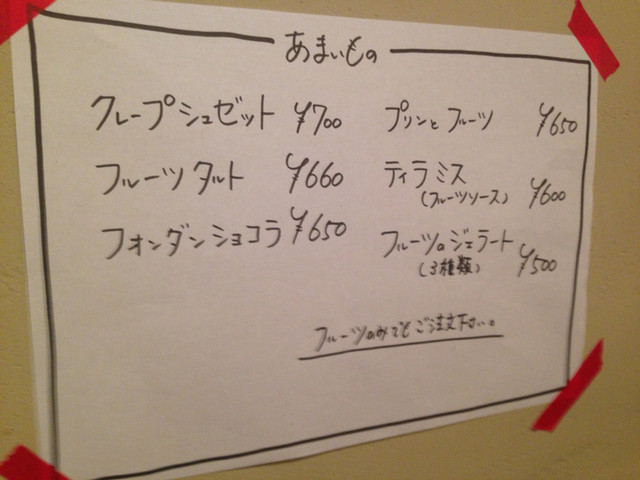 あまいもの
クレープシュゼット ¥700
フルーツタルト ¥660
フォンダンショコラ ¥650
プリンとフルーツ ¥650
ティラミス
(フルーツソース) ¥600
フルーツのジェラート
(3種類) ¥500
フルーツのみでもご注文下さい。